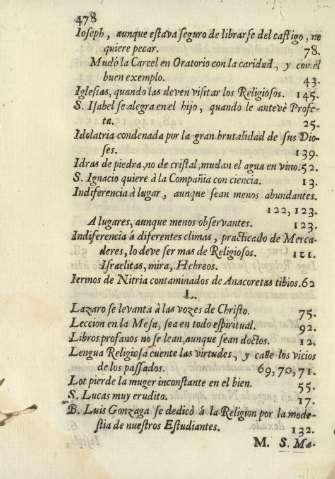 478
Ioseph, aunque estava seguro de librarse del castigo, no
quiere pecar. 78.
Mudò la Carcel en Oratorio con la caridad, y con el
buen exemplo. 43.
Iglesias, quando las deven visitar los Religiosos. 145.
S. Isabel se alegra en el hijo, quando le antevè Profe-
ta. 25.
Idolatria condenada por la gran brutalidad de sus Dio-
ses. 139.
Idras de piedra, no de cristal, mudan el agua en vino. 52.
S. Ignacio quiere à la Compañia con ciencia. 13.
Indiferencia à lugar, aunque sean menos abundantes.
122, 123.
A lugares, aunque menos observantes. 123.
Indiferencia à diferentes climas, practicado de Merca-
deres, lo deve ser mas de Religiosos. 121.
Israelitas, mira, Hebreos.
Iermos de Nitria contaminados de Anacoretas tibios. 62
L.
Lazaro se levanta à las vozes de Christo. 75.
Leccion en la Mesa, sea en todo espiritual. 92.
Libros profanos no se lean, aunque sean doctos. 12.
Lengua Religiosa cuente las virtudes, y calle los vicios
de los passados. 69, 70, 71.
Lot pierde la muger inconstante en el bien. 55.
S. Lucas muy erudito. 17.
B. Luis Gonzaga se dedicò à la Religion por la mode-
stia de nuestros Estudiantes. 132.
M. S. Ma-